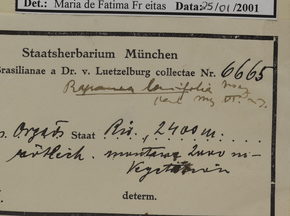 Det.: Maria de Fatima Freitas Data: 25/01/2001
Staatsherbarium München
Brasilianae a Dr. v. Luetzelburg collectae Nr. 6665
Rapanea lancifolia
Orgãos Staat Rio, 2400 m
rötlich. montana 2000 m
Vegetation
determ.